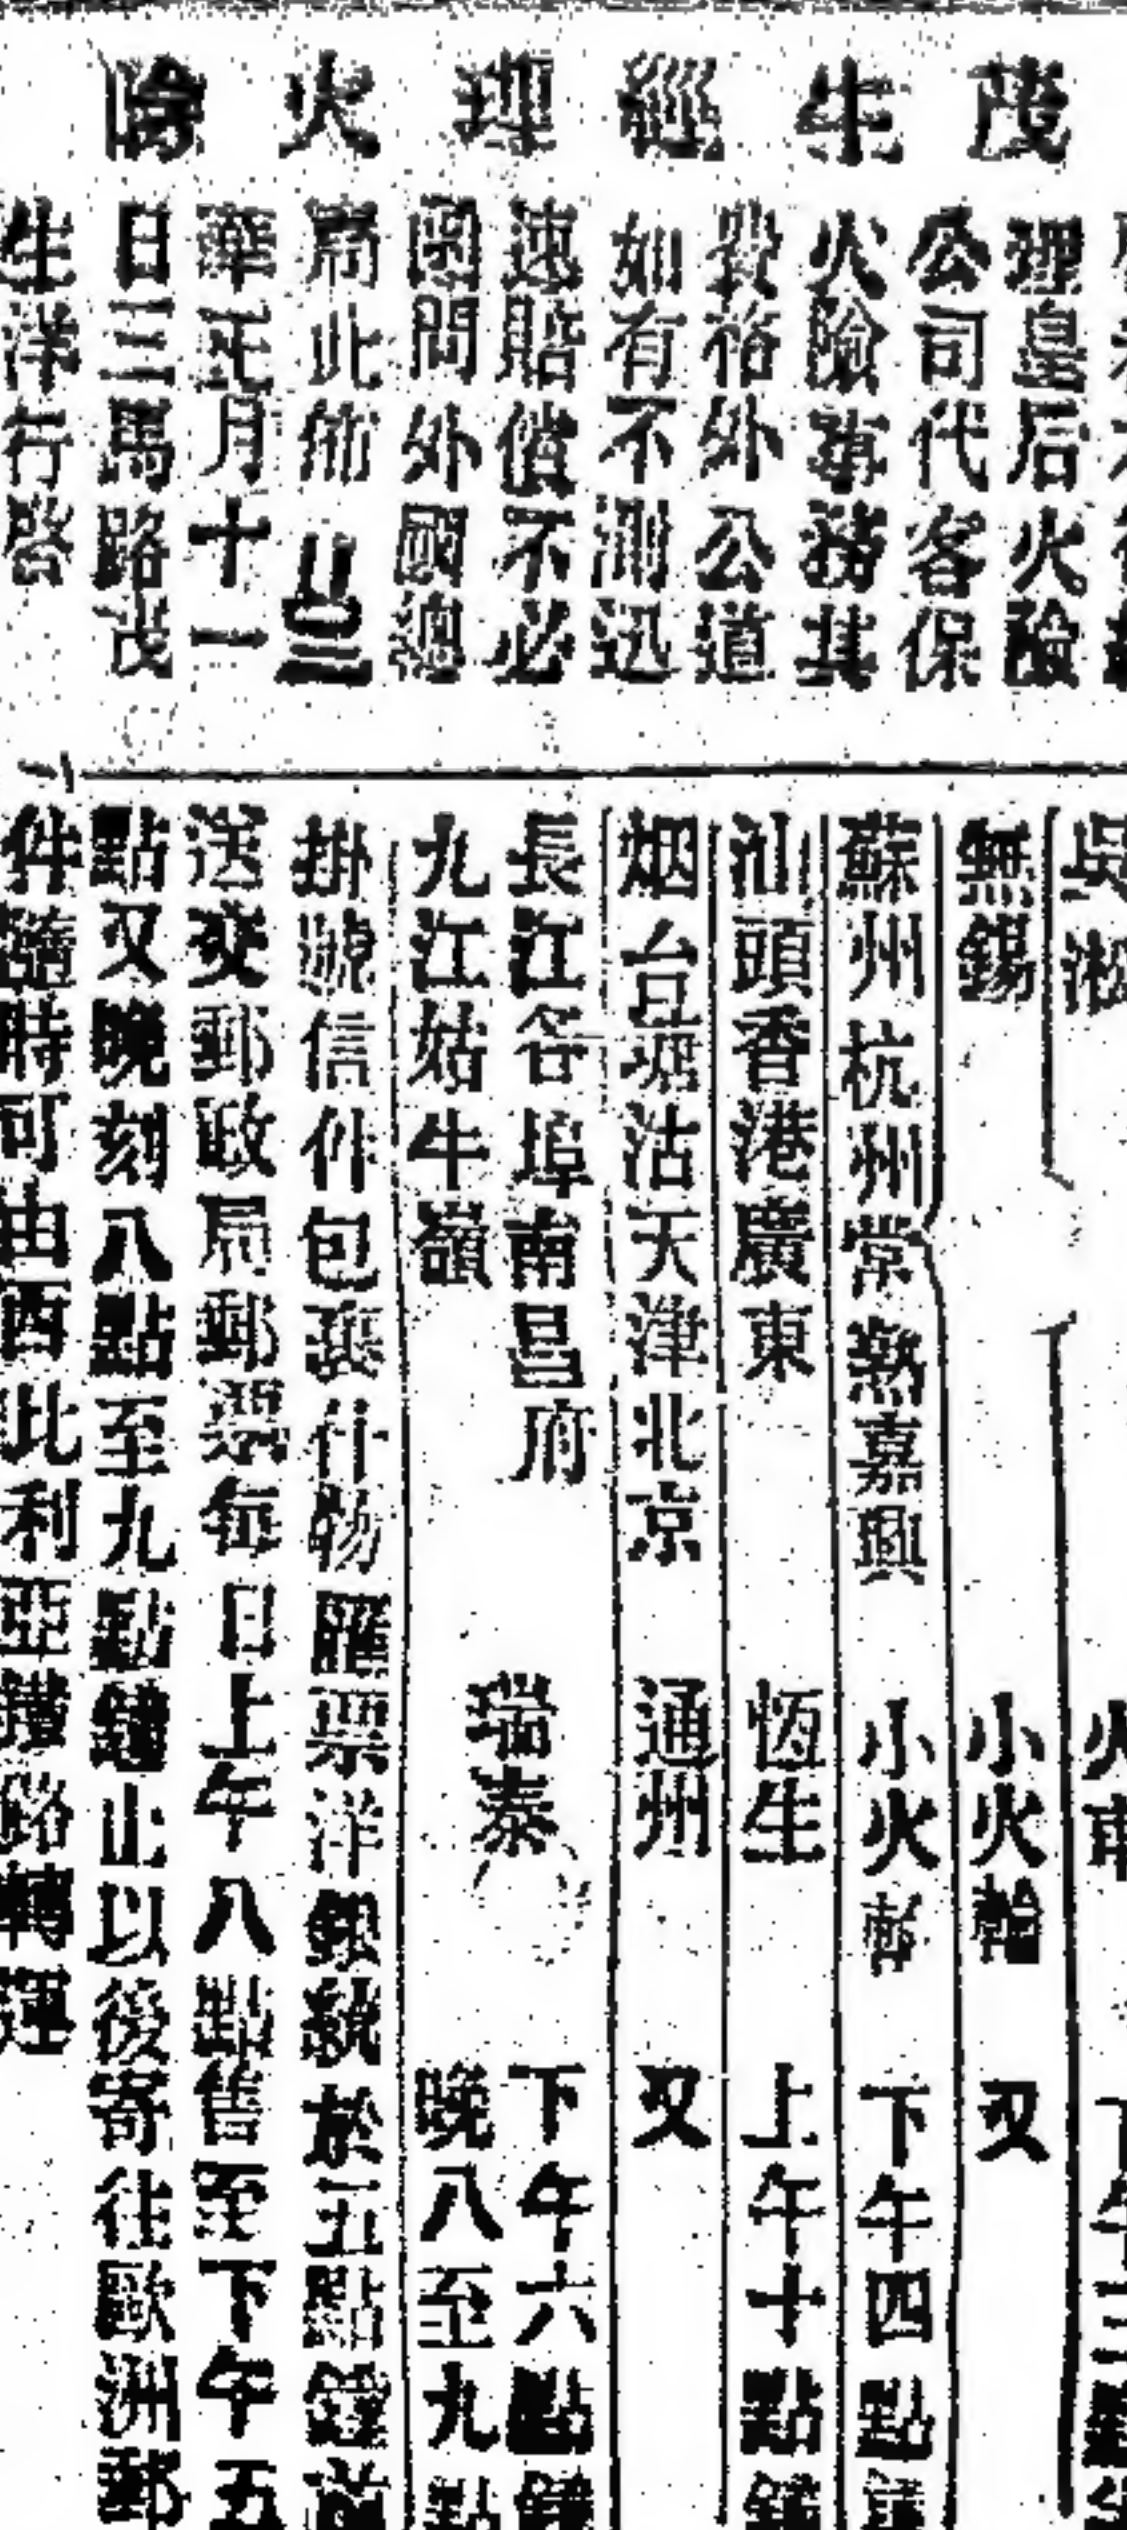 茂生經理火險
理皇后火險
公司代客保
火險事務其
費格外公道
如有不測迅
速賠償不必
函問外國總
局此佈
華正月十一
日三馬路茂
生洋行啓
吳淞 火車
無錫 小火輪 又
蘇州杭州常熟嘉興 小火輪 下午四點鐘
汕頭香港廣東 恆生 上午十點鐘
烟台塘沽天津北京 通州 又
長江各埠南昌府 瑞泰 下午六點鐘
九江姑牛嶺 晚八至九點
掛號信件包裹什物匯票洋銀執於五點鐘前
送交郵政局郵票每日上午八點售至下午五
點又晚刻八點至九點鐘止以後寄往歐洲郵
件隨時可由西比利亞鐵路轉運